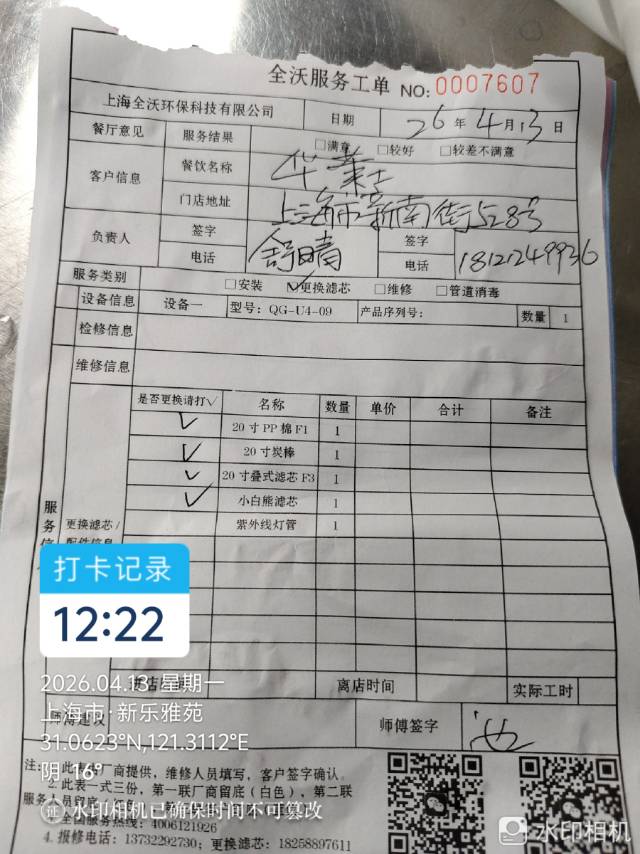 全沃服务工单 NO: 0007607
上海全沃环保科技有限公司 日期 26年4月13日
餐厅意见 服务结果 □满意 □较好 □较差不满意
客户信息 餐饮名称 华莱士
门店地址 上海市新南街528号
负责人 签字 舒晴 签字
电话 电话 18121249936
服务类别 □安装 ☑更换滤芯 □维修 □管道消毒
设备信息 设备一 型号: QG-U4-09 产品序列号: 数量 1
检修信息
维修信息
是否更换请打√ 名称 数量 单价 合计 备注
√ 20寸PP棉F1 1
√ 20寸炭棒 1
√ 20寸叠式滤芯F3 1
√ 小白熊滤芯 1
紫外线灯管 1
服务信
更换滤芯/
配件信息
打卡记录
12:22
离店时间 实际工时
2026.04.13 星期一
上海市·新乐雅苑
师傅签字
31.0623°N,121.3112°E
阴 16°
注: 厂商提供，维修人员填写，客户签字确认。
2. 此表一式三份，第一联厂商留底（白色），第二联
服务人员留底
水印相机已确保时间不可篡改
全国服务热线: 4006121926
4. 报修电话: 13732292730; 更换滤芯: 18258897611
水印相机